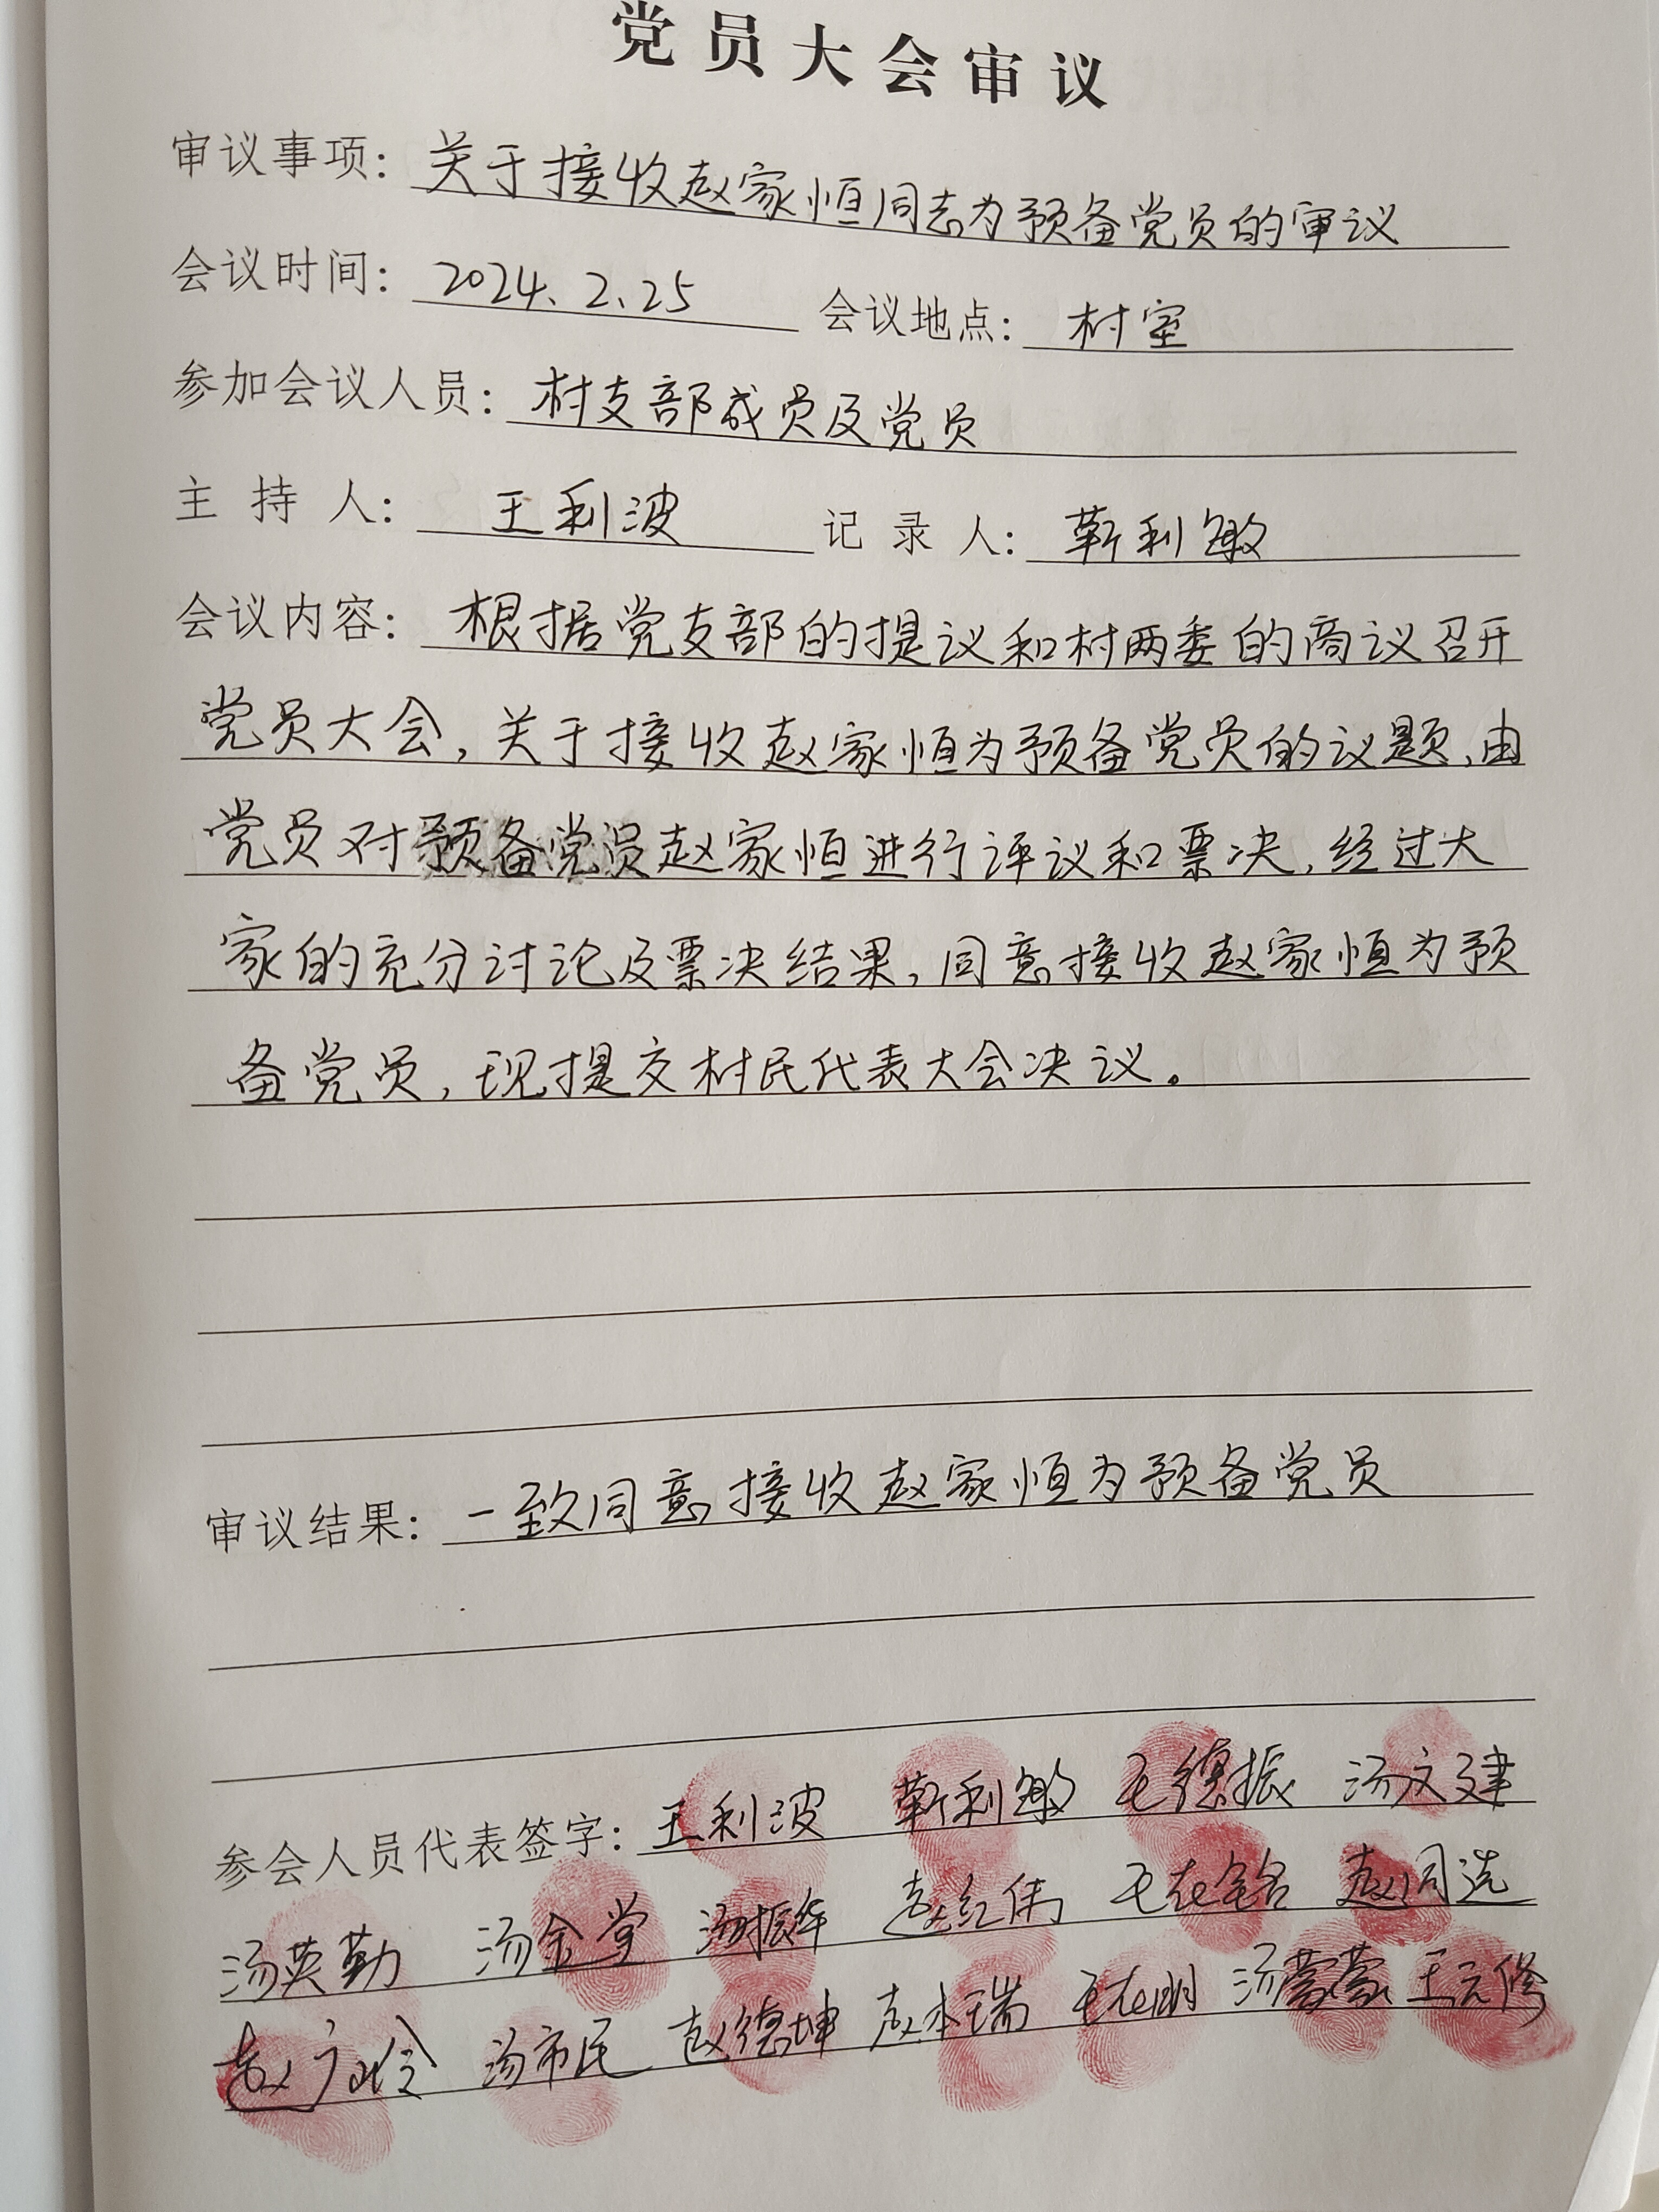 党员大会审议
审议事项：关于接收赵家恒同志为预备党员的审议
会议时间：2024.2.25 会议地点：村室
参加会议人员：村支部成员及党员
主持人：王利波 记录人：靳利敏
会议内容：根据党支部的提议和村两委的商议召开
党员大会，关于接收赵家恒为预备党员的议题，由
党员对预备党员赵家恒进行评议和票决，经过大
家的充分讨论及票决结果，同意接收赵家恒为预
备党员，现提交村民代表大会决议。
审议结果：一致同意接收赵家恒为预备党员
参会人员代表签字：王利波 靳利敏 毛德振 汤文建
汤英勤 汤金堂 汤振华 赵红伟 毛在铭 赵同选
赵广 汤市民 赵德坤 赵本瑞 毛在明 汤蒙蒙 王元修